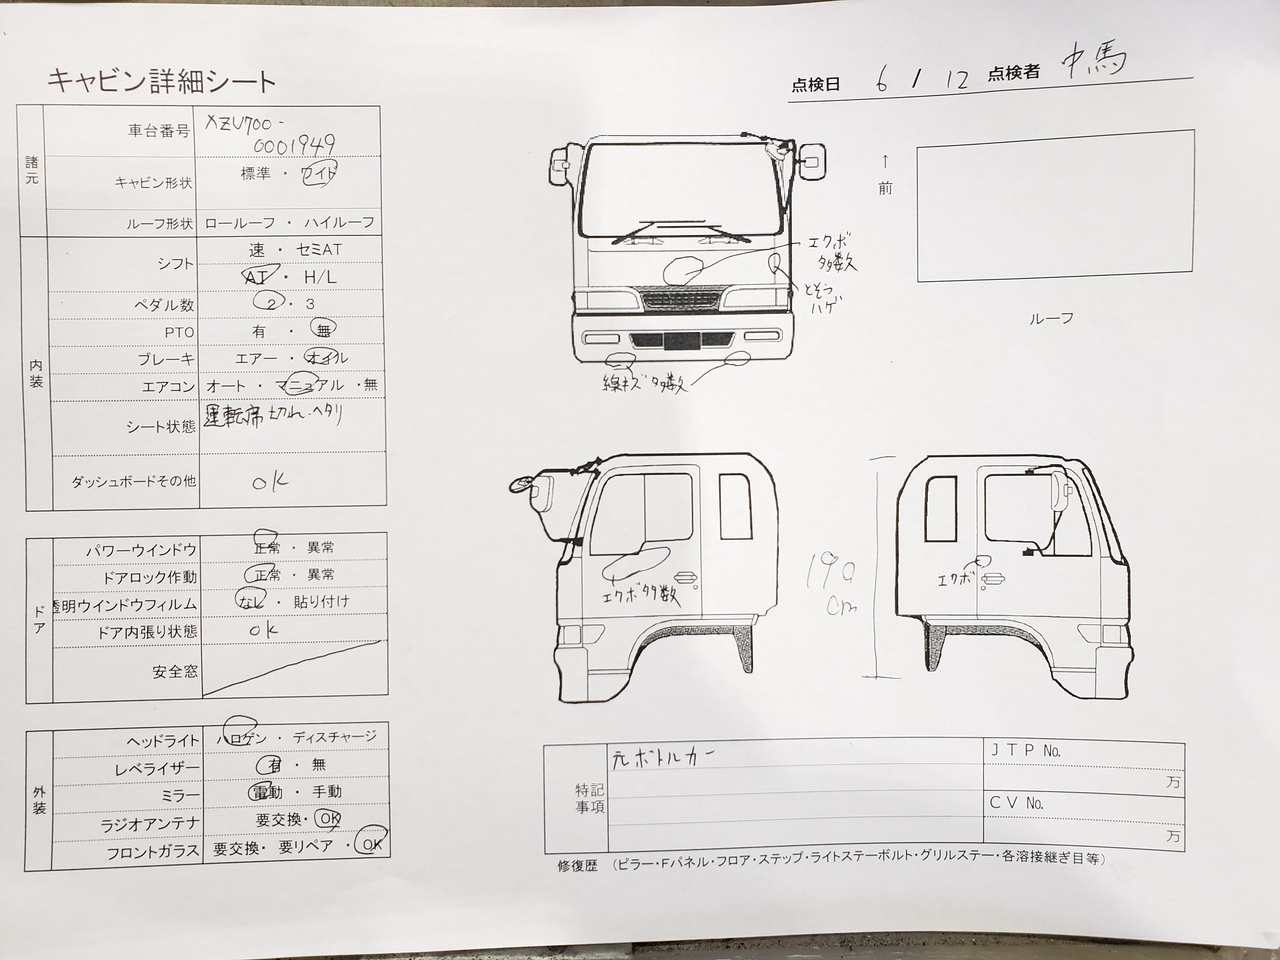 キャビン詳細シート
点検日 6 / 12 点検者 中馬
諸元
車台番号 XZU700-
0001949
キャビン形状 標準 ・ ワイド
ルーフ形状 ロールーフ ・ ハイルーフ
内装
シフト 速 ・ セミAT
AT ・ H/L
ペダル数 2 ・ 3
PTO 有 ・ 無
ブレーキ エアー ・ オイル
エアコン オート ・ マニュアル ・無
シート状態 運転席切れ・ヘタリ
ダッシュボードその他 OK
ドア
パワーウインドウ 正常 ・ 異常
ドアロック作動 正常 ・ 異常
透明ウインドウフィルム なし ・ 貼り付け
ドア内張り状態 OK
安全窓
外装
ヘッドライト ハロゲン ・ ディスチャージ
レベライザー 有 ・ 無
ミラー 電動 ・ 手動
ラジオアンテナ 要交換・ OK
フロントガラス 要交換・ 要リペア ・ OK
エクボ
多数
とそう
ハゲ
線キズ多数
↑
前
ルーフ
エクボ多数
190
cm
エクボ
特記
事項
元ボトルカー
JTP No.
万
CV No.
万
修復歴 （ピラー・Fパネル・フロア・ステップ・ライトステーボルト・グリルステー・各溶接継ぎ目等）